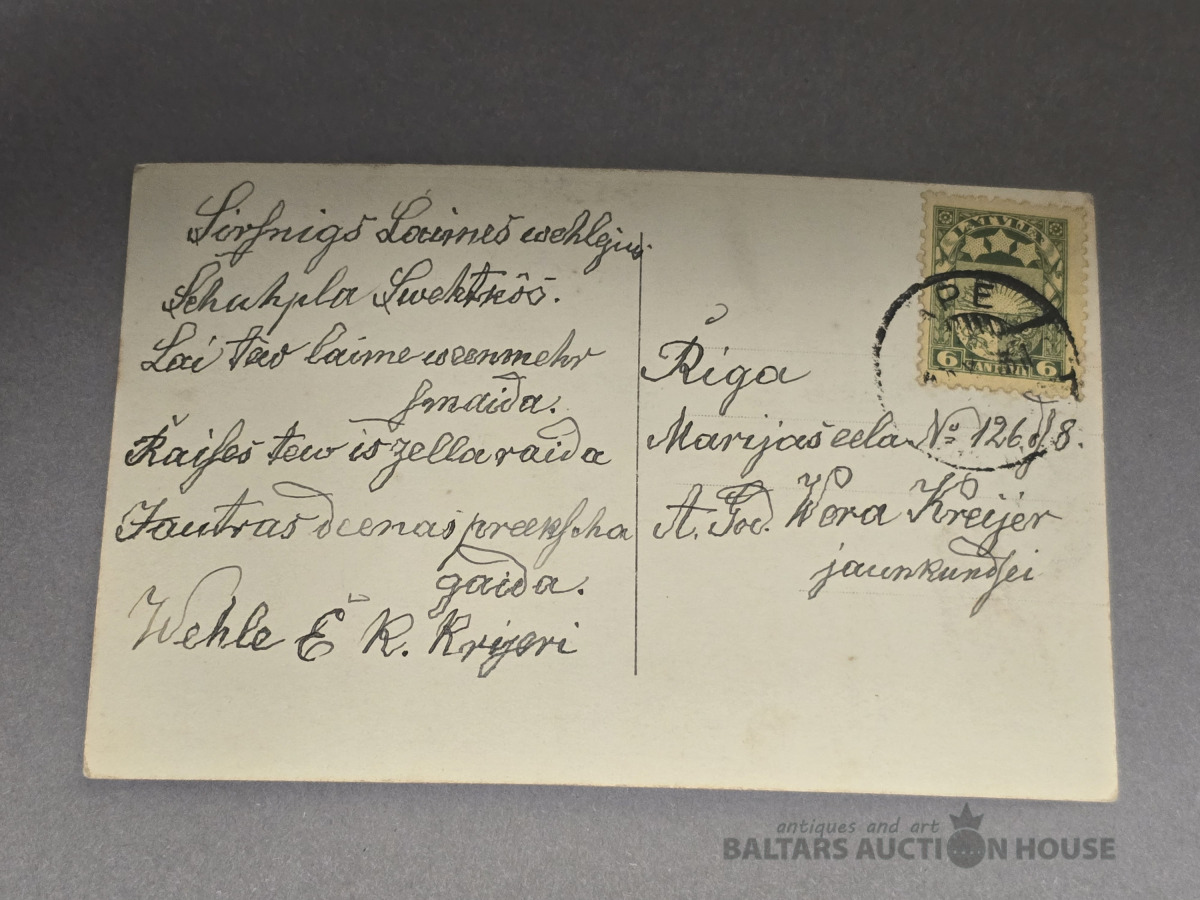 Sirsnigs Laimes wehlejums
Schuhpla Swehtkôs.
Lai tew laime weenmehr
smaida.
Kaises tew is zella raida
Jautras deenas preekscha
gaida.
Wehle E K. Krijeri
LATVIJA
6 SANTIMI 6
APE
Riga
Marijas eela № 126 d/8.
A. God. Wera Kreijer
jaunkundsei
antiques and art
BALTARS AUCTION HOUSE